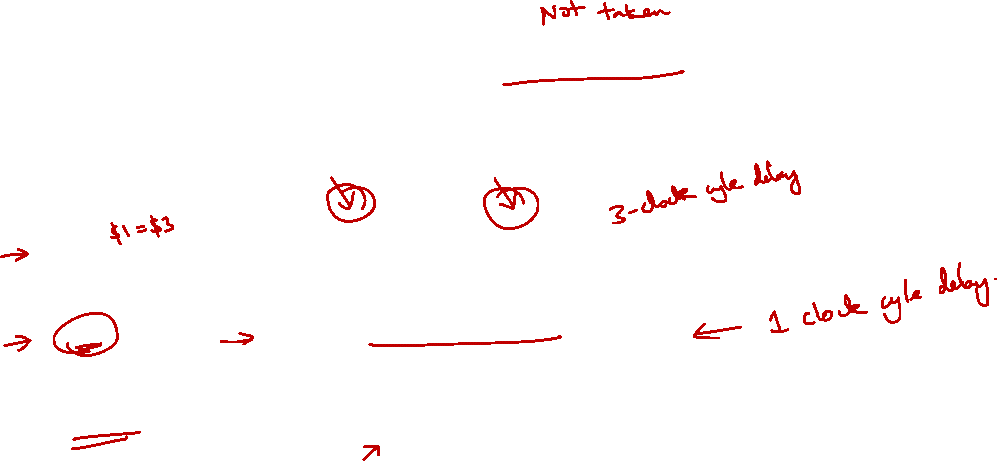 Not taken
3-clock cycle delay
$1=$3
1 clock cycle delay.